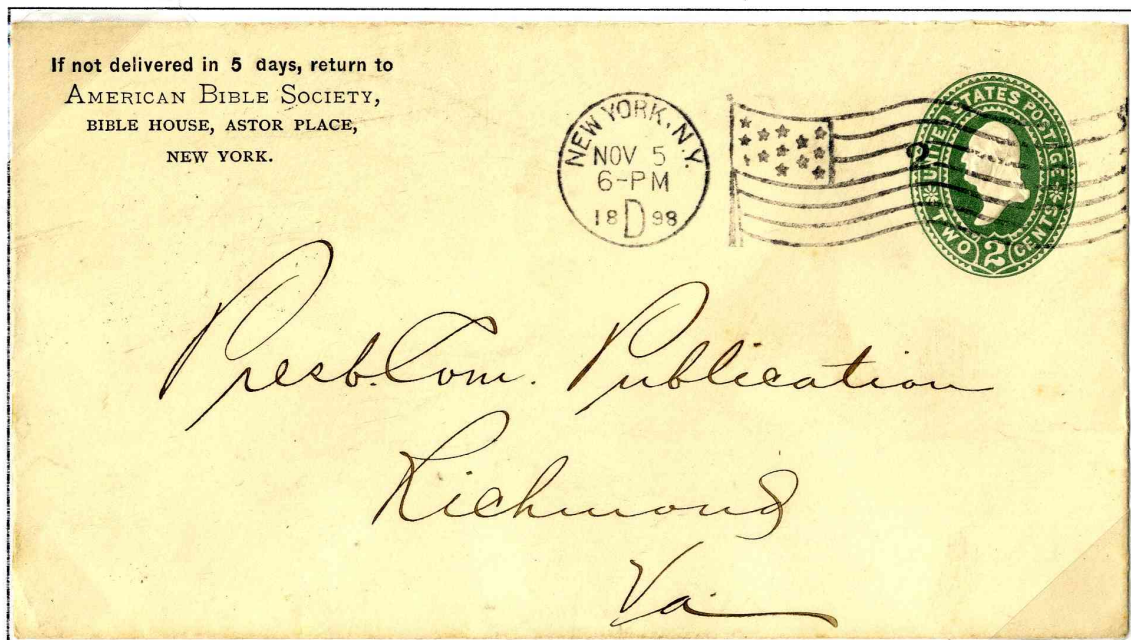 If not delivered in 5 days, return to
AMERICAN BIBLE SOCIETY,
BIBLE HOUSE, ASTOR PLACE,
NEW YORK.
NEW YORK, N.Y.
NOV 5
6-PM
18 D 98
2
UNITED STATES POSTAGE
TWO 2 CENTS
Presb. Com. Publication
Richmond
Va.